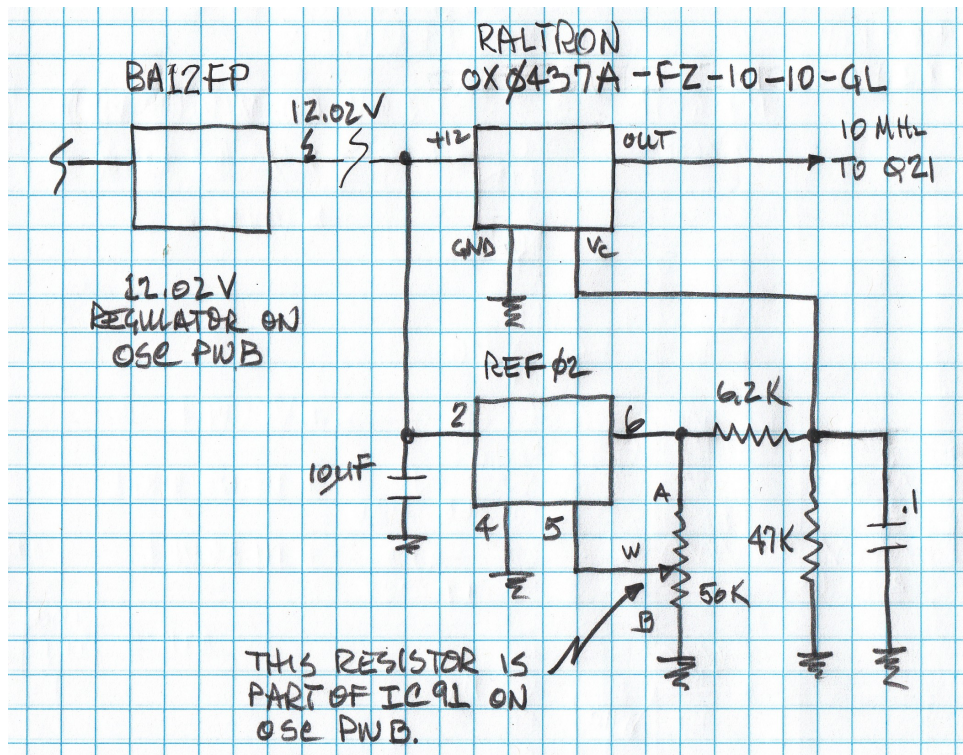 RALTRON
OXØ437A-FZ-10-10-GL
BA12FP
12.02V
+12
OUT
10 MHz
TO Q21
GND
VC
12.02V
REGULATOR ON
OSC PWB
REFØ2
2
6
6.2K
10µF
4
5
A
W
B
50K
47K
.1
THIS RESISTOR IS
PART OF IC91 ON
OSC PWB.